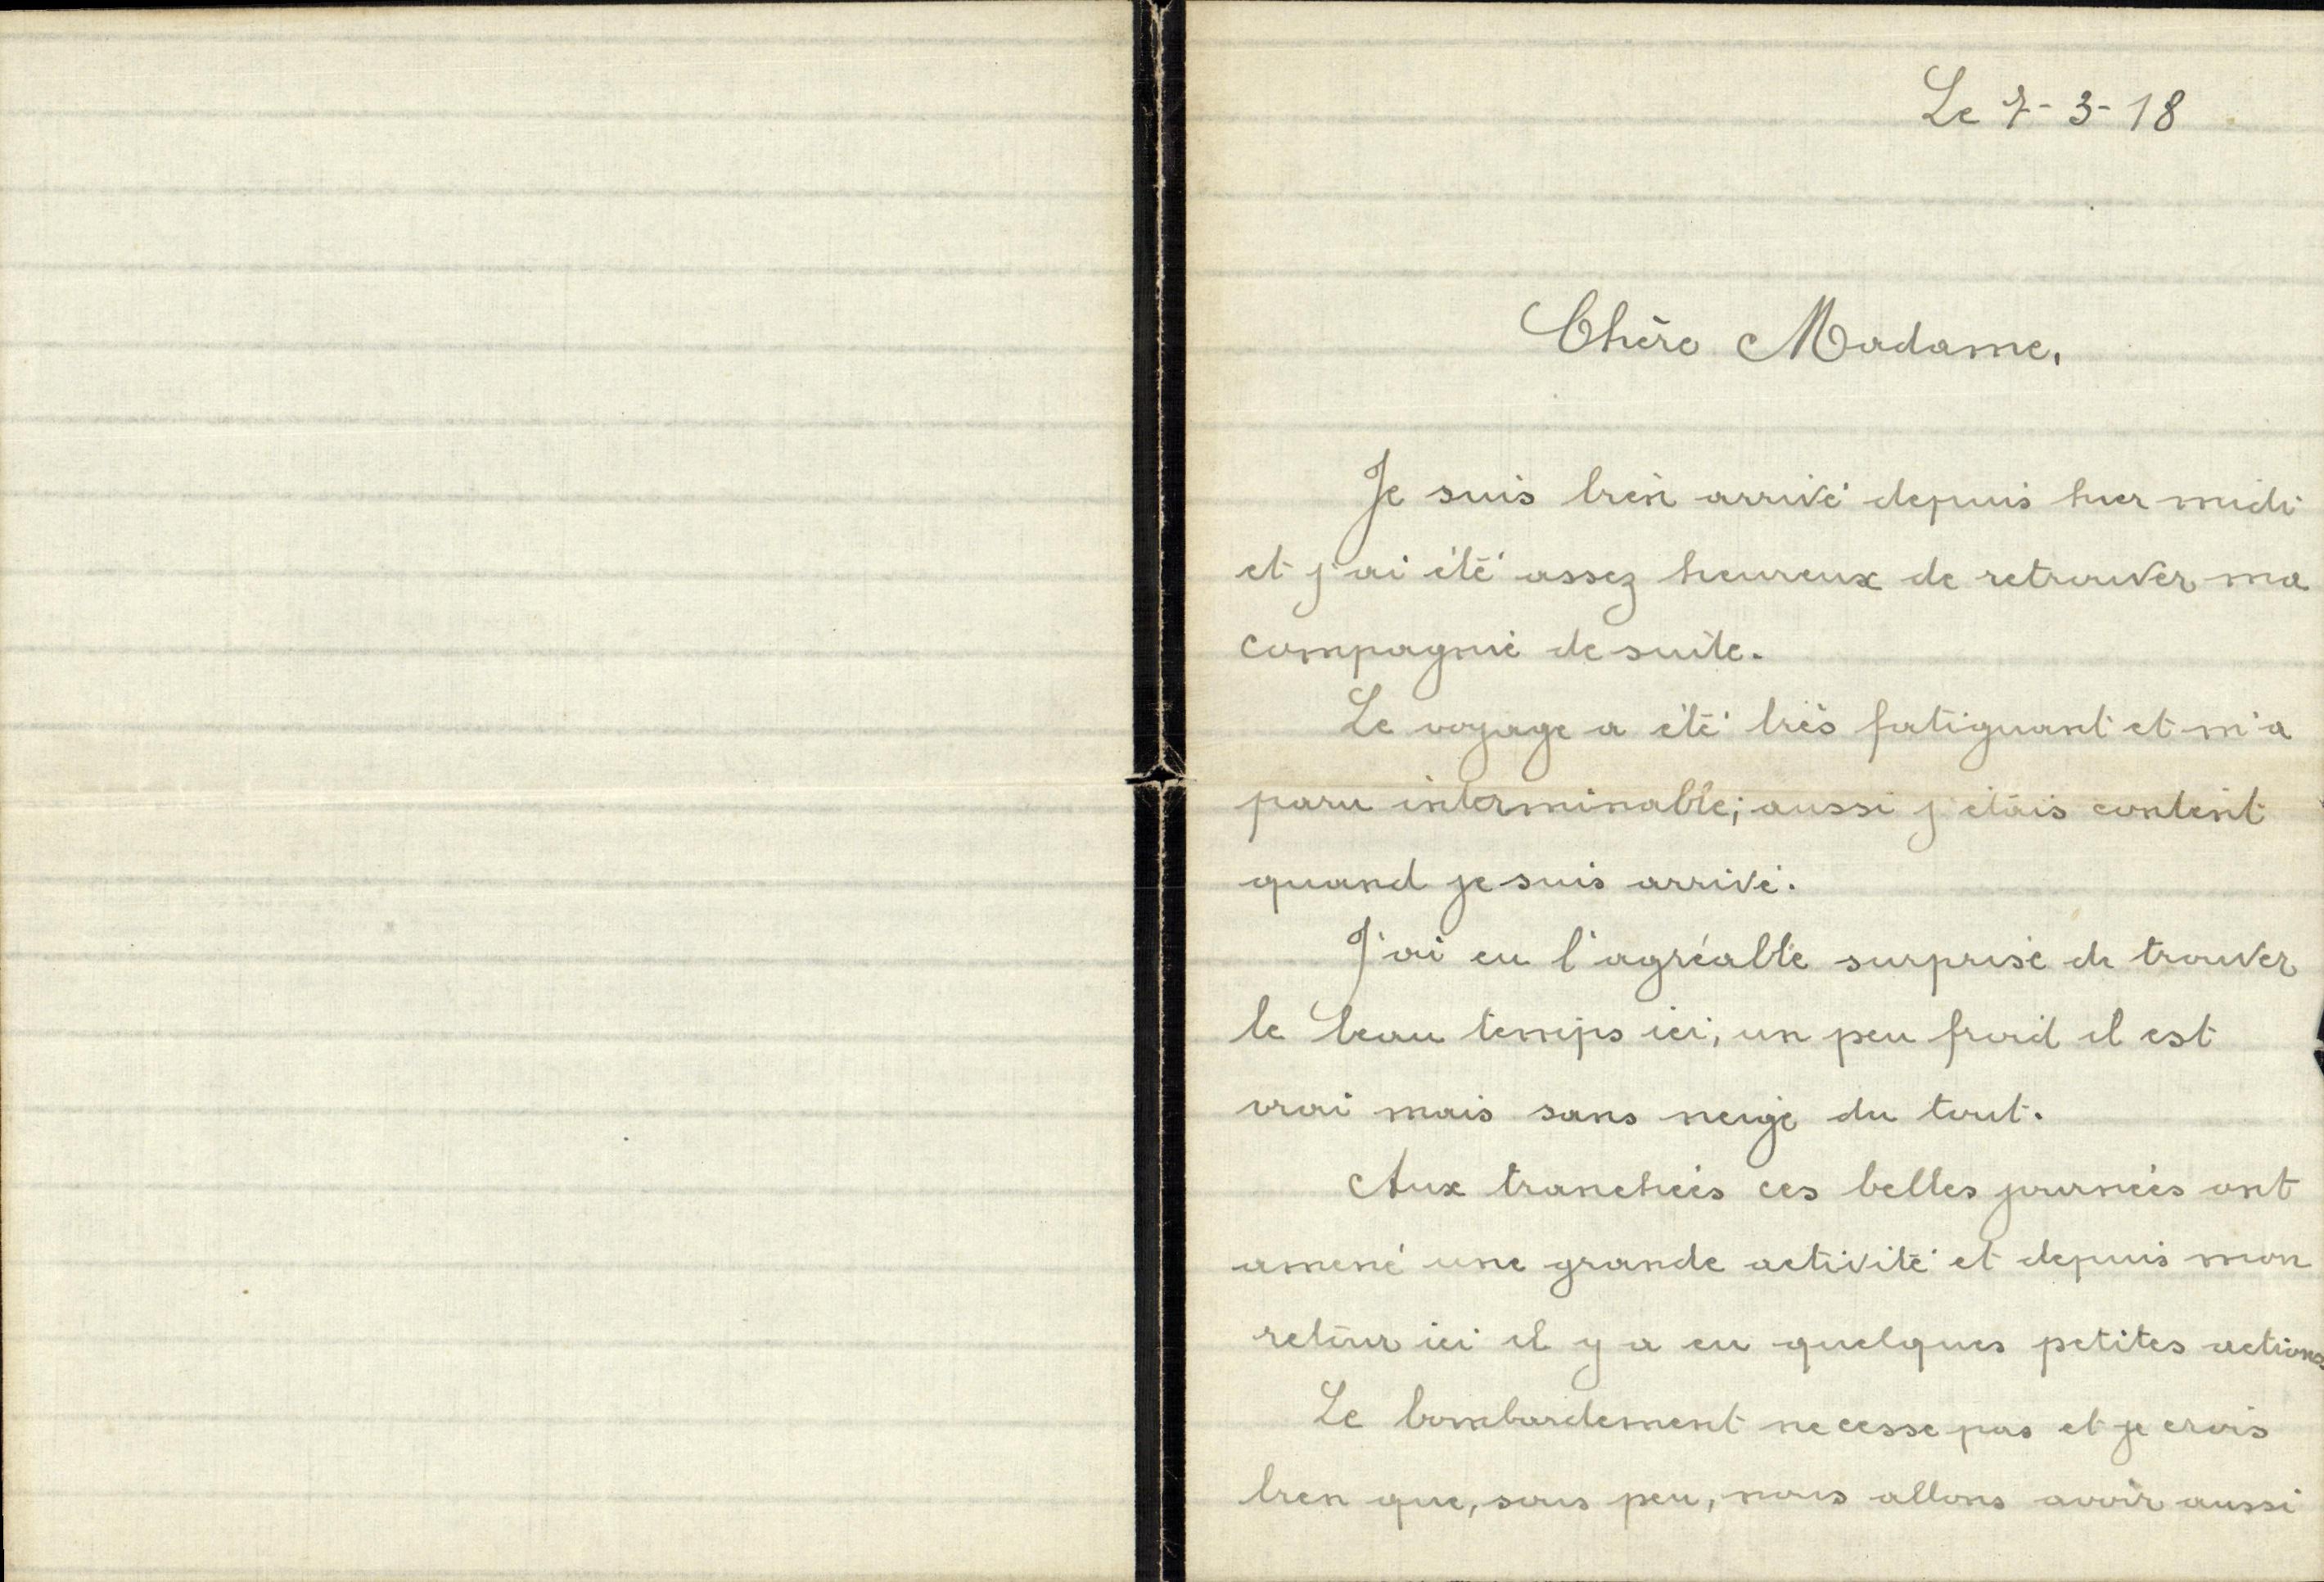 Le 7-3-18
Chère Madame,
Je suis bien arrivé depuis hier midi
et j'ai été assez heureux de retrouver ma
compagnie de suite.
Le voyage a été très fatiguant et m'a
paru interminable; aussi j'étais content
quand je suis arrivé.
J'ai eu l'agréable surprise de trouver
le beau temps ici, un peu froid il est
vrai mais sans neige du tout.
Aux tranchées ces belles journées ont
amené une grande activité et depuis mon
retour ici il y a eu quelques petites actions
Le bombardement ne cesse pas et je crois
bien que, sous peu, nous allons avoir aussi